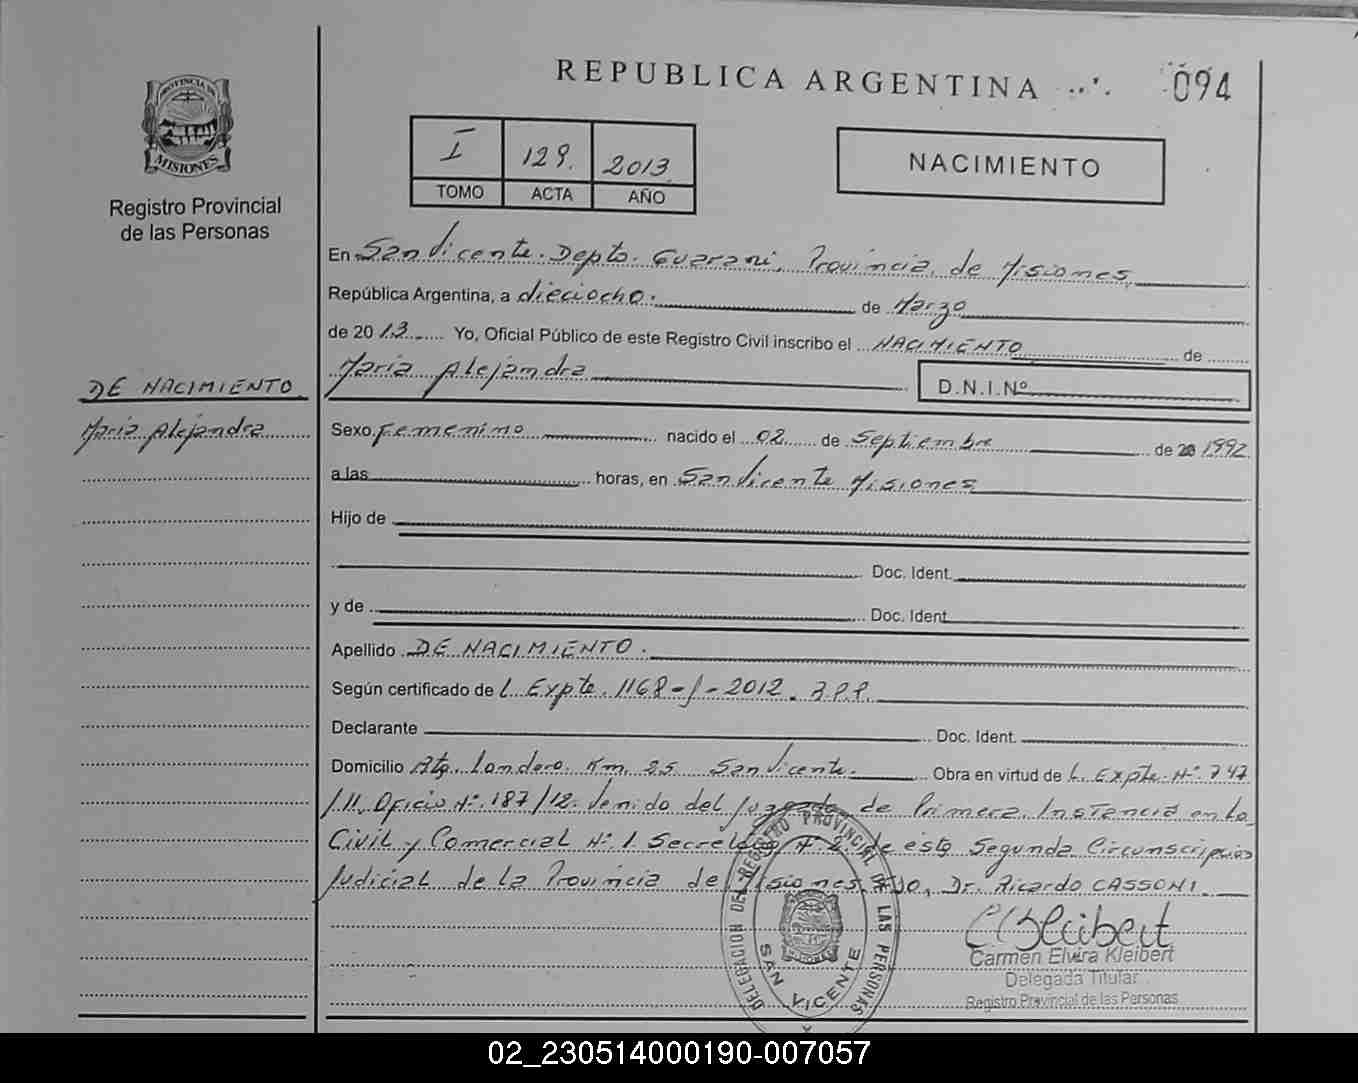 REPUBLICA ARGENTINA
094
PROVINCIA DE
MISIONES
Registro Provincial
de las Personas
I 129. 2013
TOMO ACTA AÑO
NACIMIENTO
En San Vicente. Depto. Guarani, Provincia de Misiones,
República Argentina, a dieciocho. de Marzo
de 2013 Yo, Oficial Público de este Registro Civil inscribo el NACIMIENTO de
Maria Alejandra D.N.I.Nº
DE NACIMIENTO
Maria Alejandra
Sexo femenino nacido el 02 de Septiembre de 20 1992
a las horas, en San Vicente Misiones
Hijo de
Doc. Ident.
y de Doc. Ident.
Apellido DE NACIMIENTO.
Según certificado de L. Expte. 1168-J-2012.
Declarante Doc. Ident.
Domicilio Londero. Km. San Vicente. Obra en virtud de L. Expte. Nº. 747
Oficio Nº. 187/12. Venido del Juzgado de Primera Instancia en lo
Civil y Comercial Nº. 1. de esta Segunda Circunscripcion
Judicial de la Provincia de Misiones. Dr. Ricardo CASSONI.
DELEGACION DEL REGISTRO PROVINCIAL DE LAS PERSONAS
SAN VICENTE
Carmen Elvira Kleibert
Delegada Titular
Registro Provincial de las Personas
02_230514000190-007057